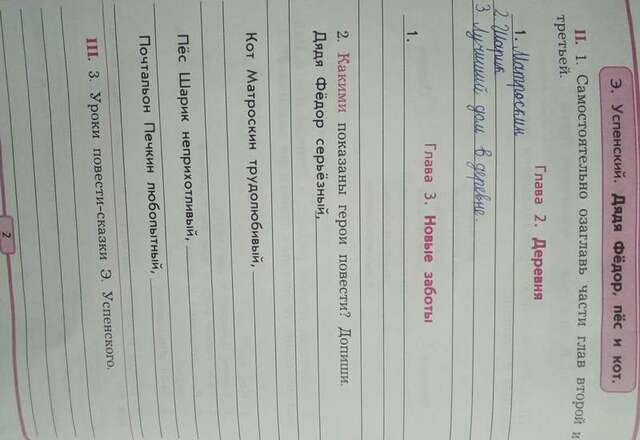 Э. Успенский. Дядя Фёдор, пёс и кот.
II. 1. Самостоятельно озаглавь части глав второй и
третьей.
Глава 2. Деревня
1. Матроскин
2. Шарик
3. Лучший дом в деревне.
Глава 3. Новые заботы
1.
2. Какими показаны герои повести? Допиши.
Дядя Фёдор серьёзный,
Кот Матроскин трудолюбивый,
Пёс Шарик неприхотливый,
Почтальон Печкин любопытный,
III. 3. Уроки повести-сказки Э. Успенского.
2